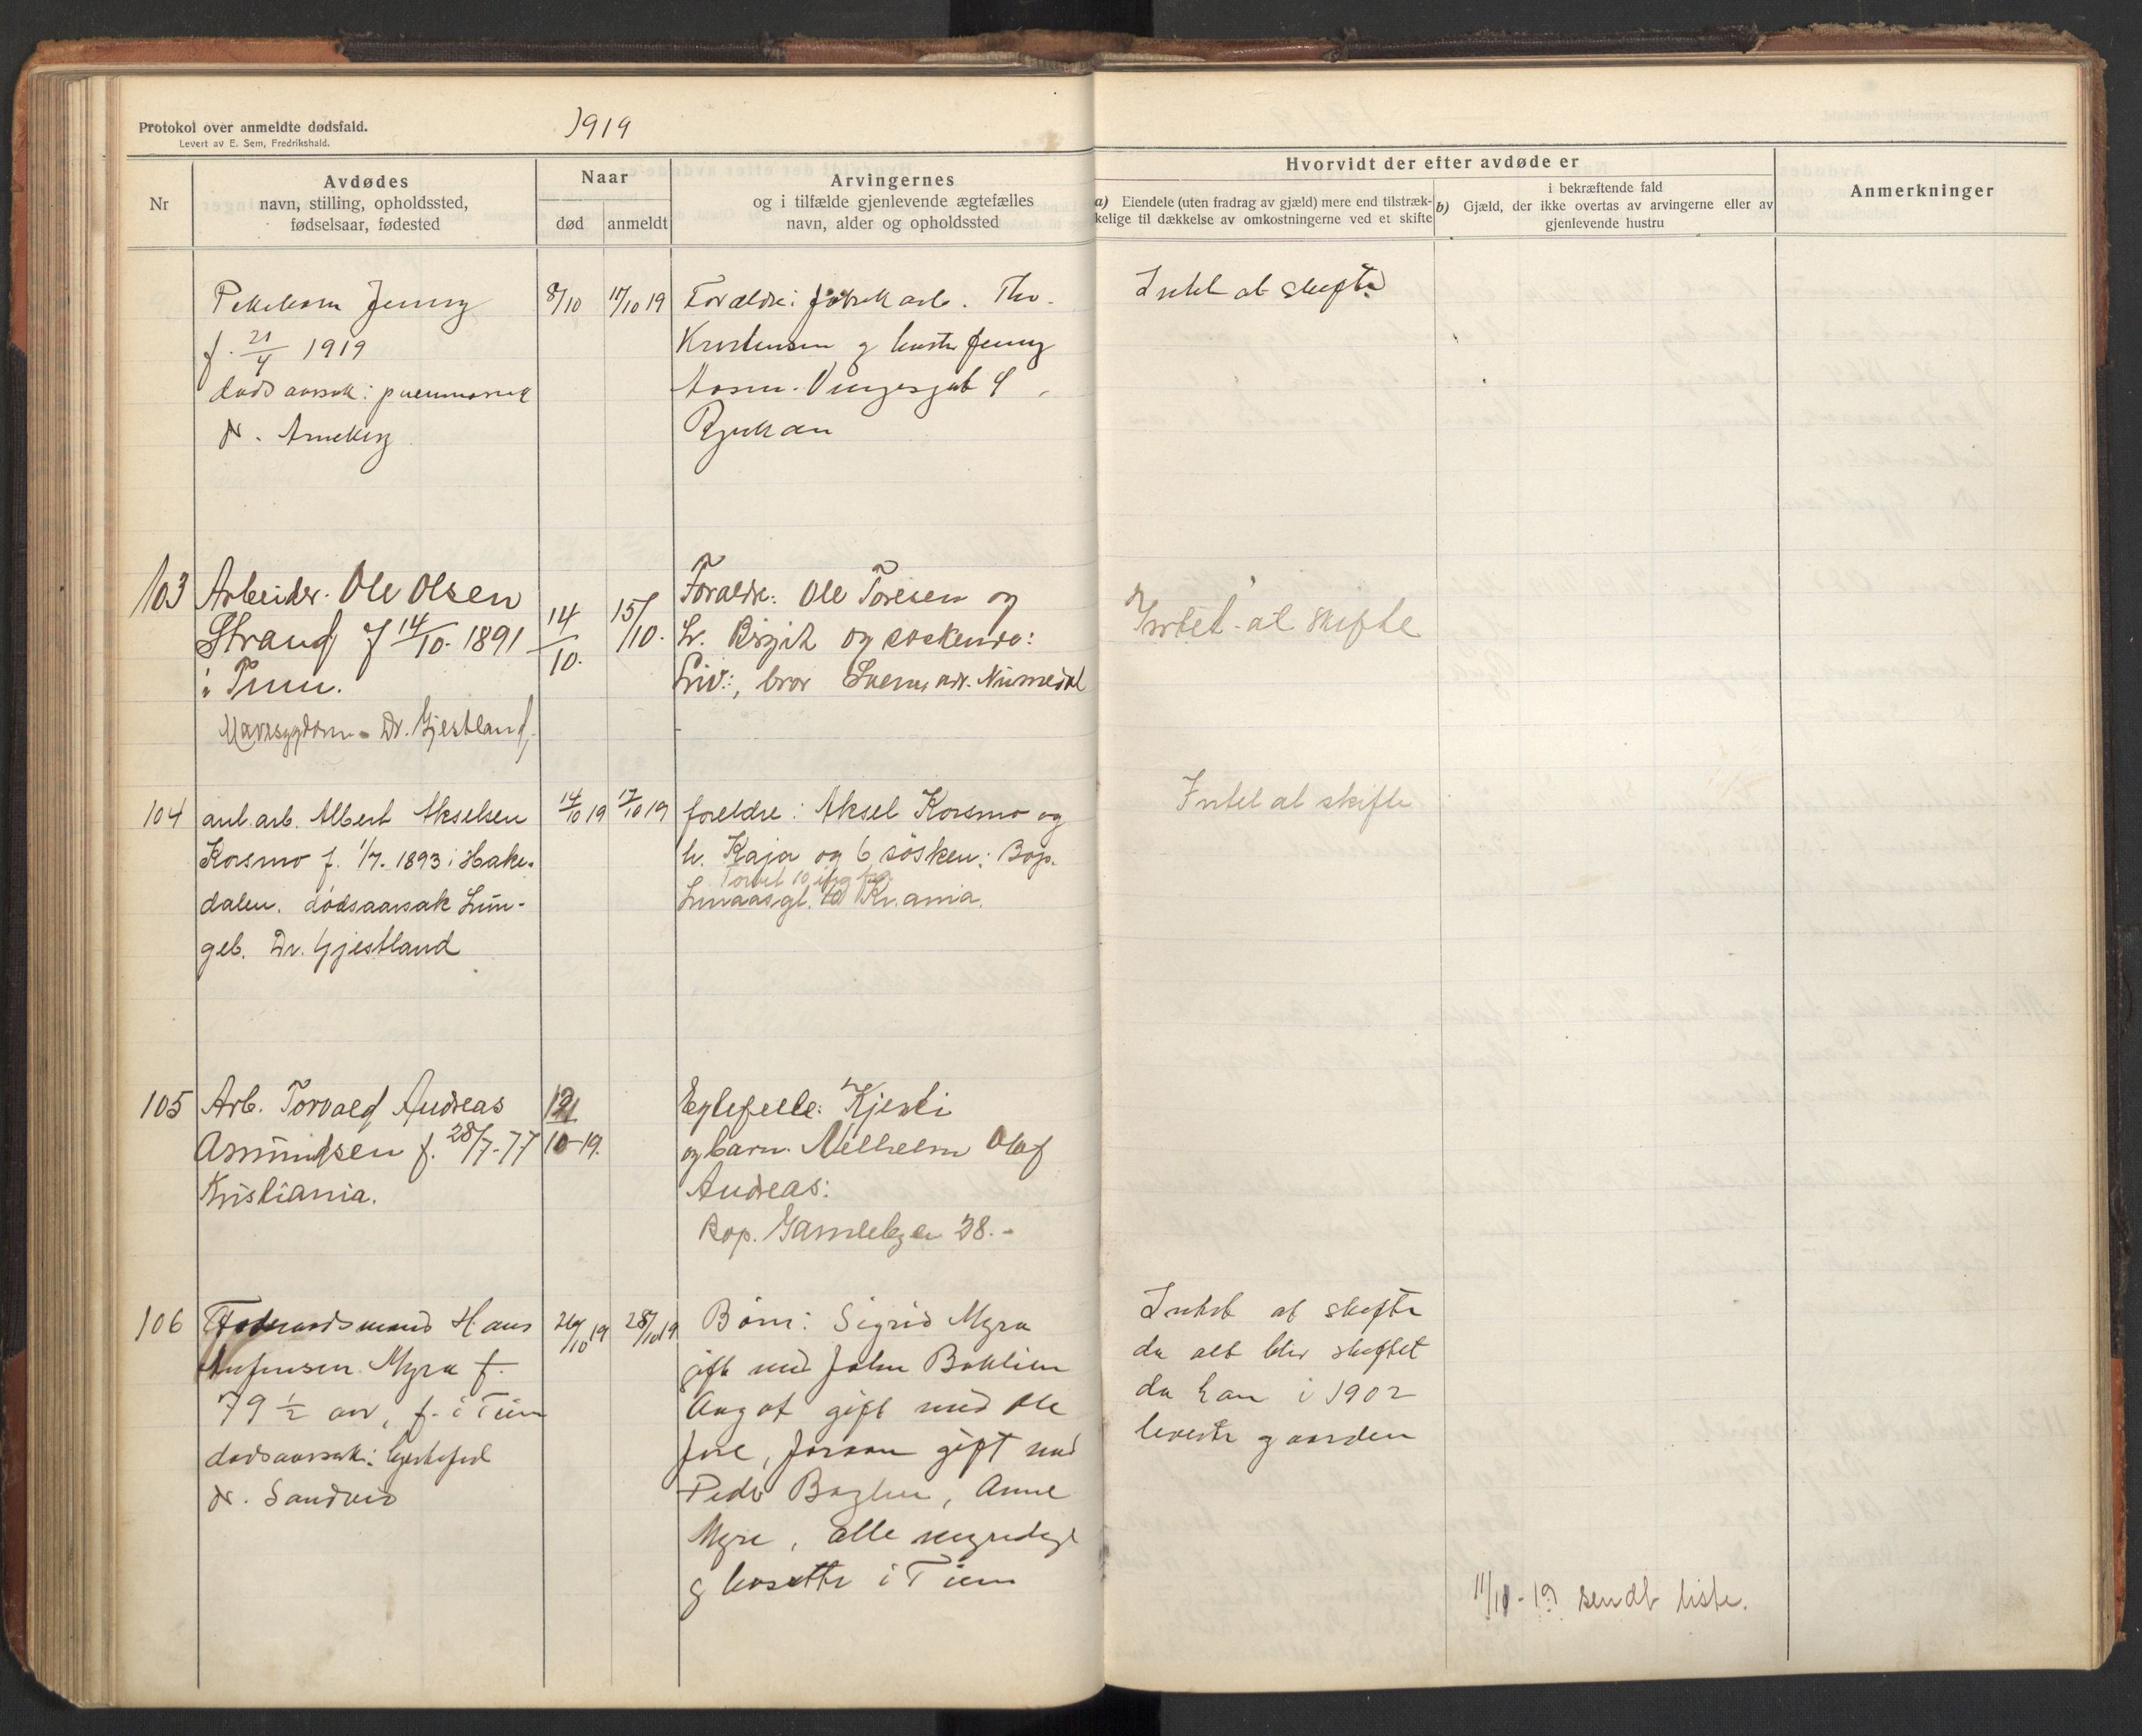 Protokol over anmeldte dødsfald.
Levert av E. Sem, Fredrikshald.
1919
Nr
Avdødes
navn, stilling, opholdssted,
fødselsaar, fødested
Naar
død
anmeldt
Arvingernes
og i tilfælde gjenlevende ægtefælles
navn, alder og opholdssted
Hvorvidt der efter avdøde er
a) Eiendele (uten fradrag av gjæld) mere end tilstræk-
kelige til dækkelse av omkostningerne ved et skifte
i bekræftende fald
b) Gjæld, der ikke overtas av arvingerne eller av
gjenlevende hustru
Anmerkninger
Pikebarn Jenny
f. 21/4 1919
dødsaarsak: pneumonie
dr. Arneberg
8/10
11/10 19
Forældre: fabrikarb. Th.
Kristensen og hustru Jenny
Rjukan
Intet at skifte
103
Arbeider Ole Olsen
Strand f 14/10. 1891
i Tinn.
Mavesygdom - Dr. Gjestland
14/10.
15/10.
Foraldre: Ole Toresen og
h. Birgit og søskende:
Liv:, bror
Intet at skifte
104
anl. arb. Albert Akselsen
Korsmo f. 1/7. 1893 i Hake-
dalen. dødsaarsak Lun-
geb. Dr. Gjestland
14/10 19
17/10 19
foreldre: Aksel Korsmo og
h. Kaja og 6 søsken: Bop.
Kr.ania.
Intet at skifte
105
Arb. Torvald Andreas
Asmundsen f. 28/7-77
Kristiania.
10-19.
Egtefelle: Kjersti
og barn. Vilhelm Olaf
Andreas:
Bop. Gamlebyen 28.-
106
Føderaadsmand Hans
Myra f.
79 ½ aar, f. i Tinn
dødsaarsak: hjertefeil
dr. Sandvid
26/10 19
28/10 19
Børn: Sigrid Myra
gift med John Baklien
Aagot gift med Ole
Jore, Joraan gift med
Peder Bøglien, Anne
Myre, alle myndige
og bosatte i Tinn
Intet at skifte
da alt blev skiftet
da han i 1902
leverte gaarden
11/11-19 sendt liste.